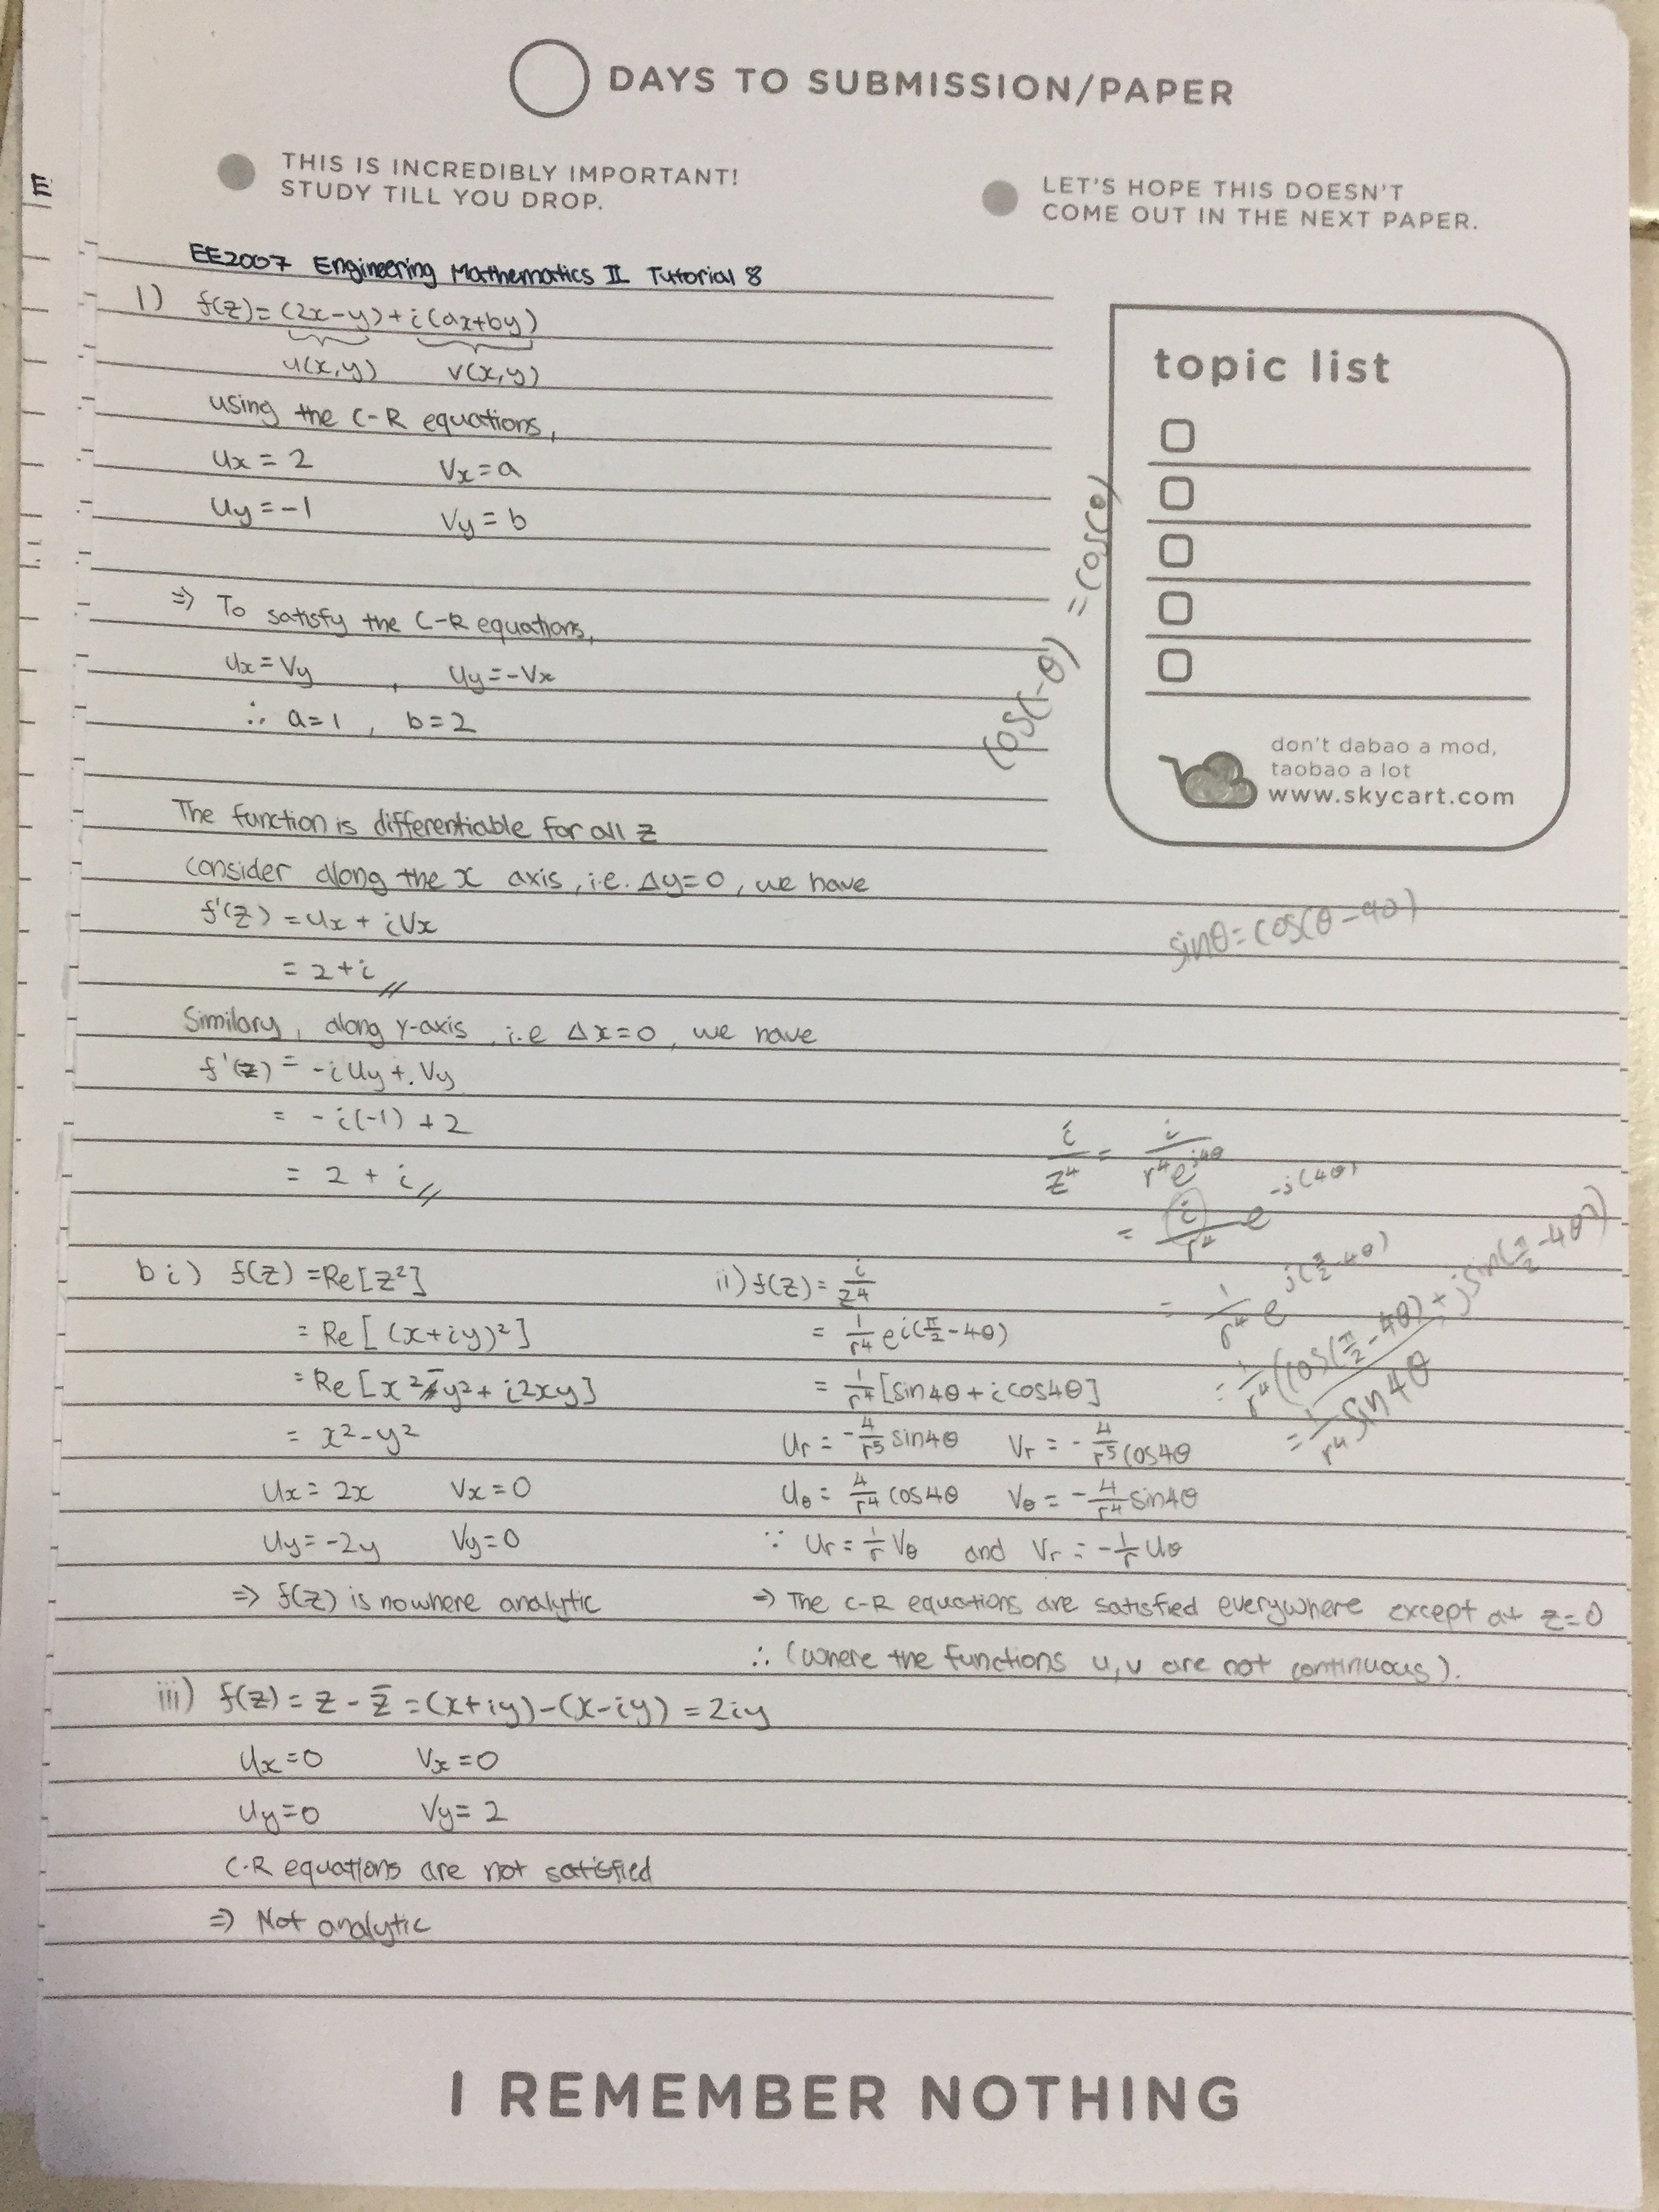 DAYS TO SUBMISSION/PAPER
THIS IS INCREDIBLY IMPORTANT!
STUDY TILL YOU DROP.
LET'S HOPE THIS DOESN'T
COME OUT IN THE NEXT PAPER.
E
EE2007 Engineering Mathematics II Tutorial 8
1) f(z)=(2x-y)+i(ax+by)
u(x,y) v(x,y)
using the C-R equations,
ux = 2 Vx=a
uy=-1 Vy=b
⇒ To satisfy the C-R equations,
ux=Vy , uy=-Vx
∴ a=1 , b=2
topic list
don't dabao a mod,
taobao a lot
www.skycart.com
cos(-θ) = cos(θ)
The function is differentiable for all z
consider along the x axis, i.e. Δy=0, we have
f'(z) = ux + iVx
= 2+i //
sinθ=cos(θ-90)
Similary, along y-axis, i.e Δx=0, we have
f'(z) = -iuy+.Vy
= -i(-1) +2
= 2 + i //
i/z⁴ = i/r⁴e^j4θ
= i/r⁴ e^-j(4θ)
= 1/r⁴ e^j(π/2-4θ)
= 1/r⁴(cos(π/2-4θ)+jsin(π/2-4θ))
= 1/r⁴ sin4θ
b i) f(z)=Re[z²]
= Re[(x+iy)²]
=Re[x²-y²+i2xy]
= x²-y²
ux=2x Vx=0
uy=-2y Vy=0
⇒ f(z) is nowhere analytic
ii) f(z)= i/z⁴
= 1/r⁴ ei(π/2-4θ)
= 1/r⁴[sin4θ+icos4θ]
ur = -4/r⁵ sin4θ Vr = -4/r⁵ cos4θ
uθ = 4/r⁴ cos4θ Vθ = -4/r⁴ sin4θ
∵ ur = 1/r Vθ and Vr = -1/r uθ
⇒ The C-R equations are satisfied everywhere except at z=0
∴ (where the functions u,v are not continuous).
iii) f(z)= z-z̄=(x+iy)-(x-iy)=2iy
ux=0 Vx=0
uy=0 Vy=2
C-R equations are not satisfied
⇒ Not analytic
I REMEMBER NOTHING